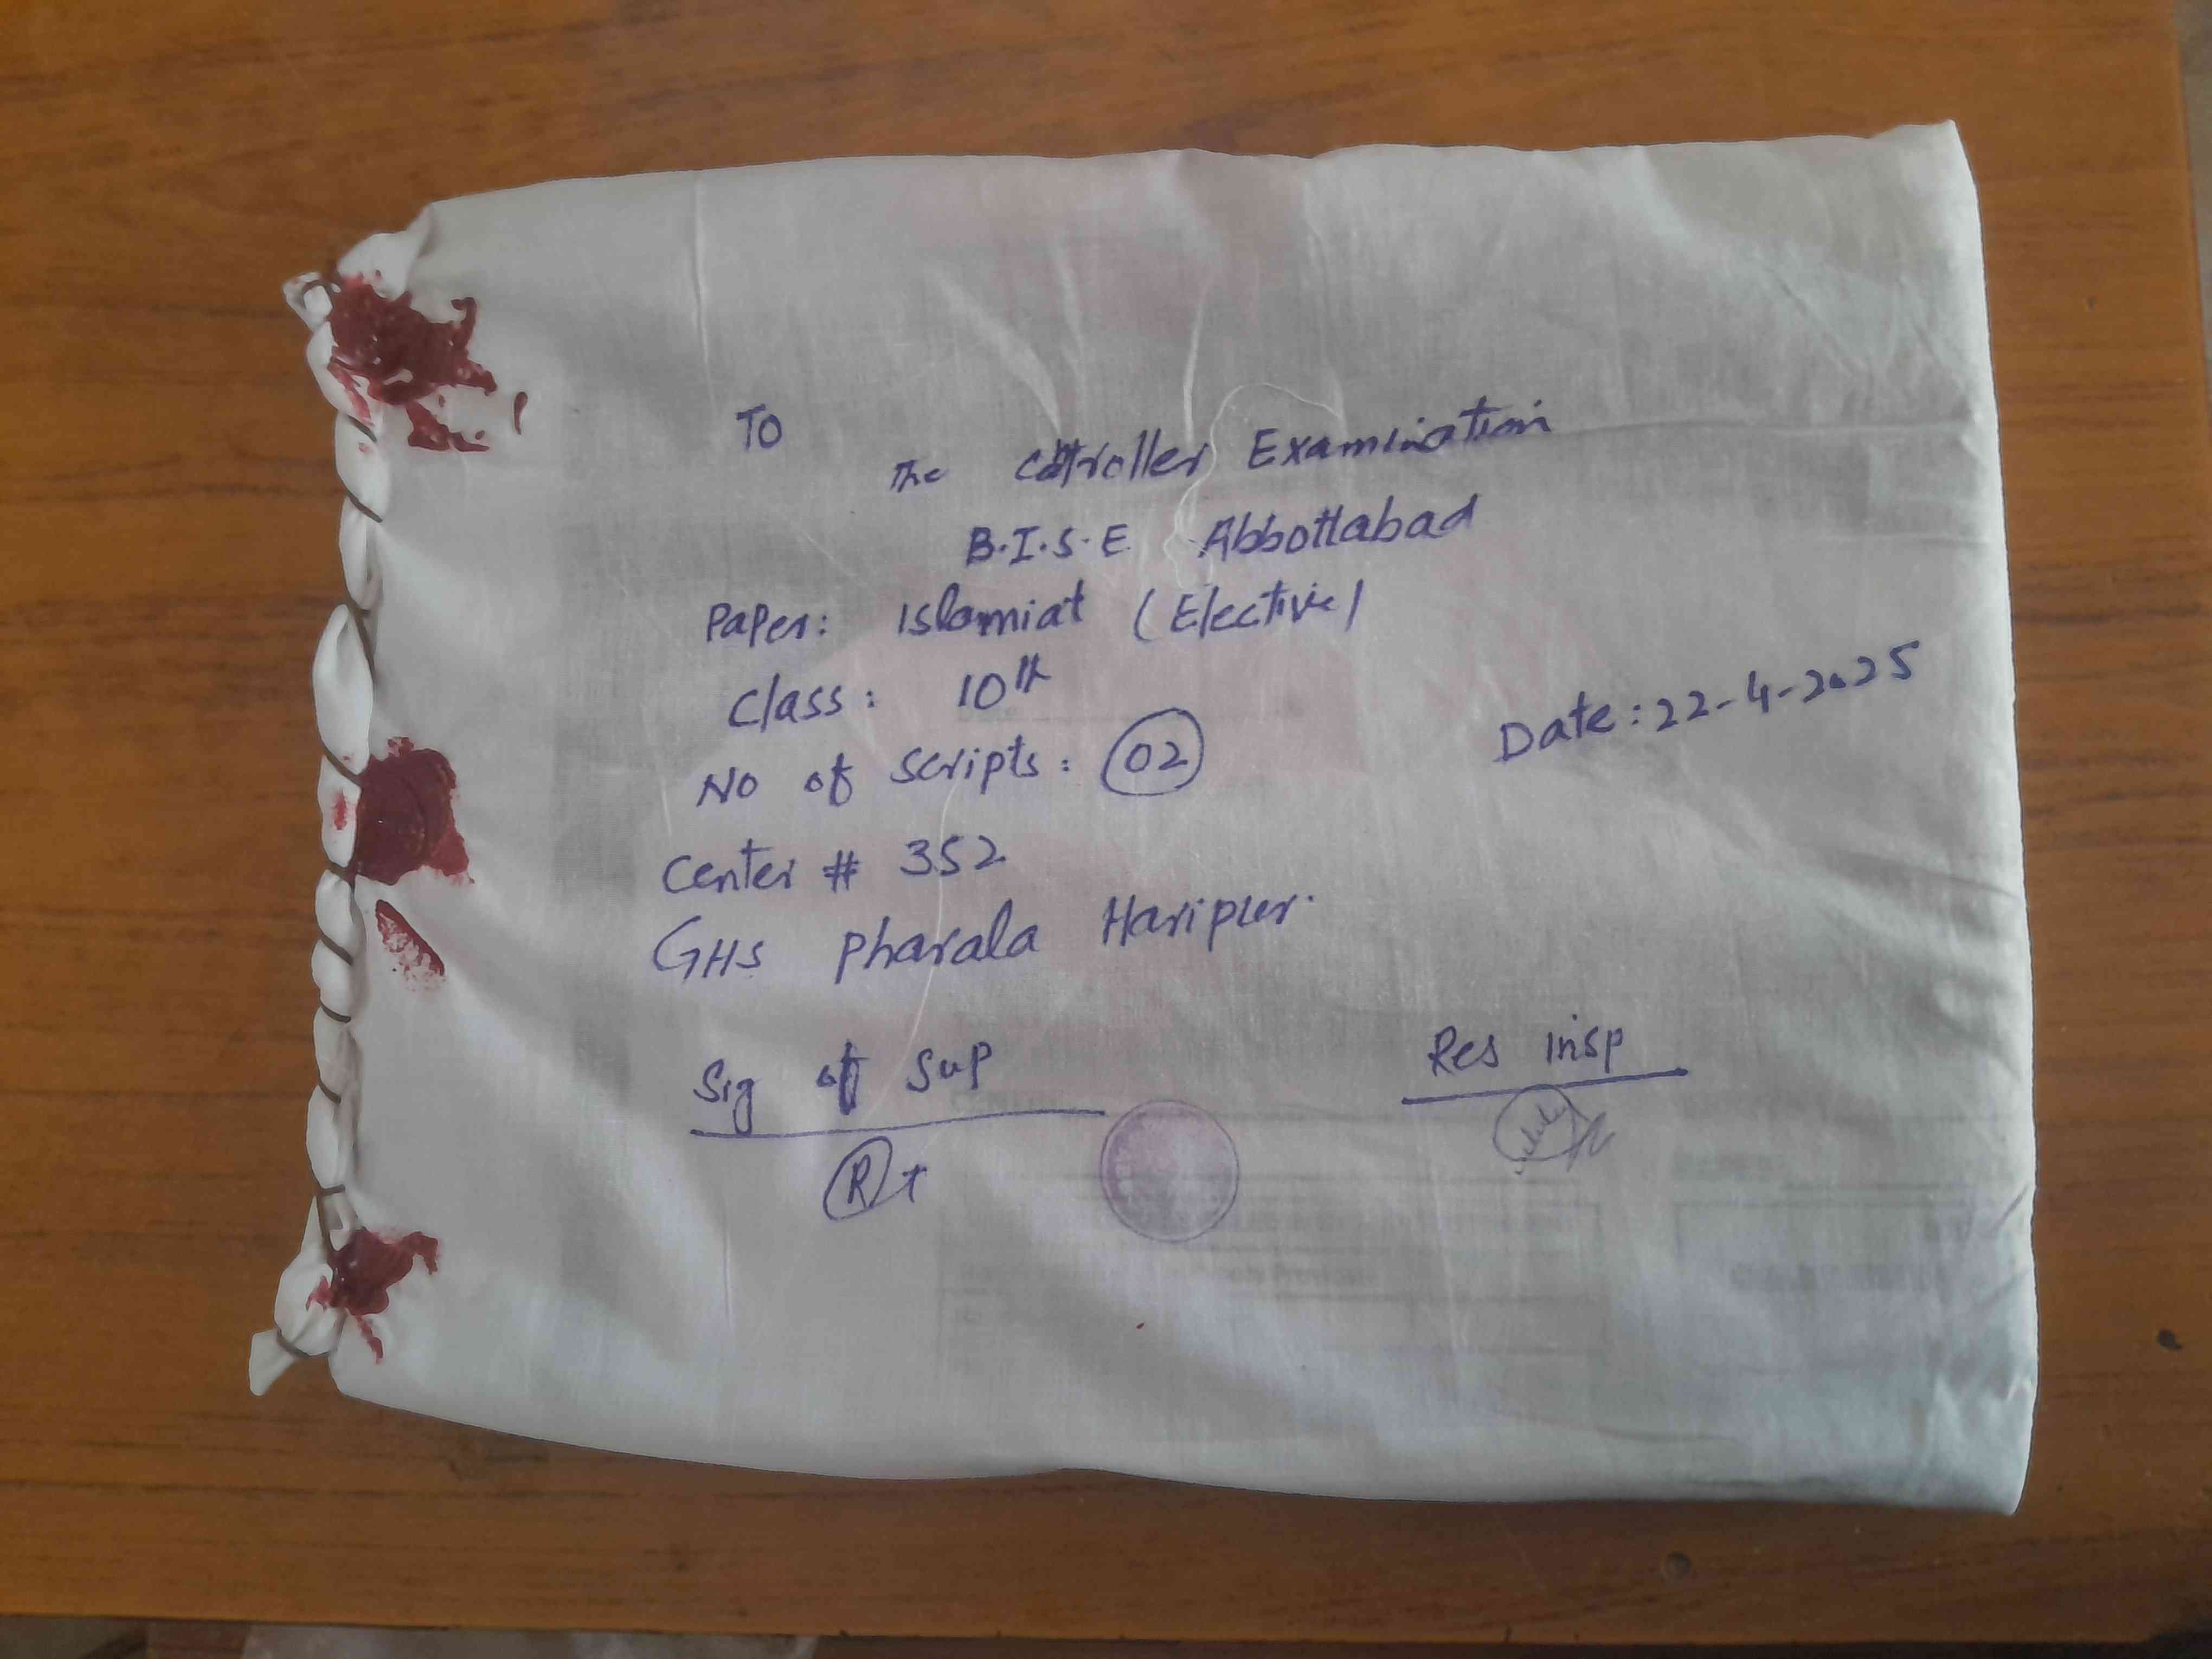 To
The Controller Examination
B.I.S.E Abbottabad
Paper: Islamiat (Elective)
Class: 10th
Date: 22-4-2025
No of scripts: 02
Center # 352
GHS Pharala Haripur.
Sig of Sup
Res Insp